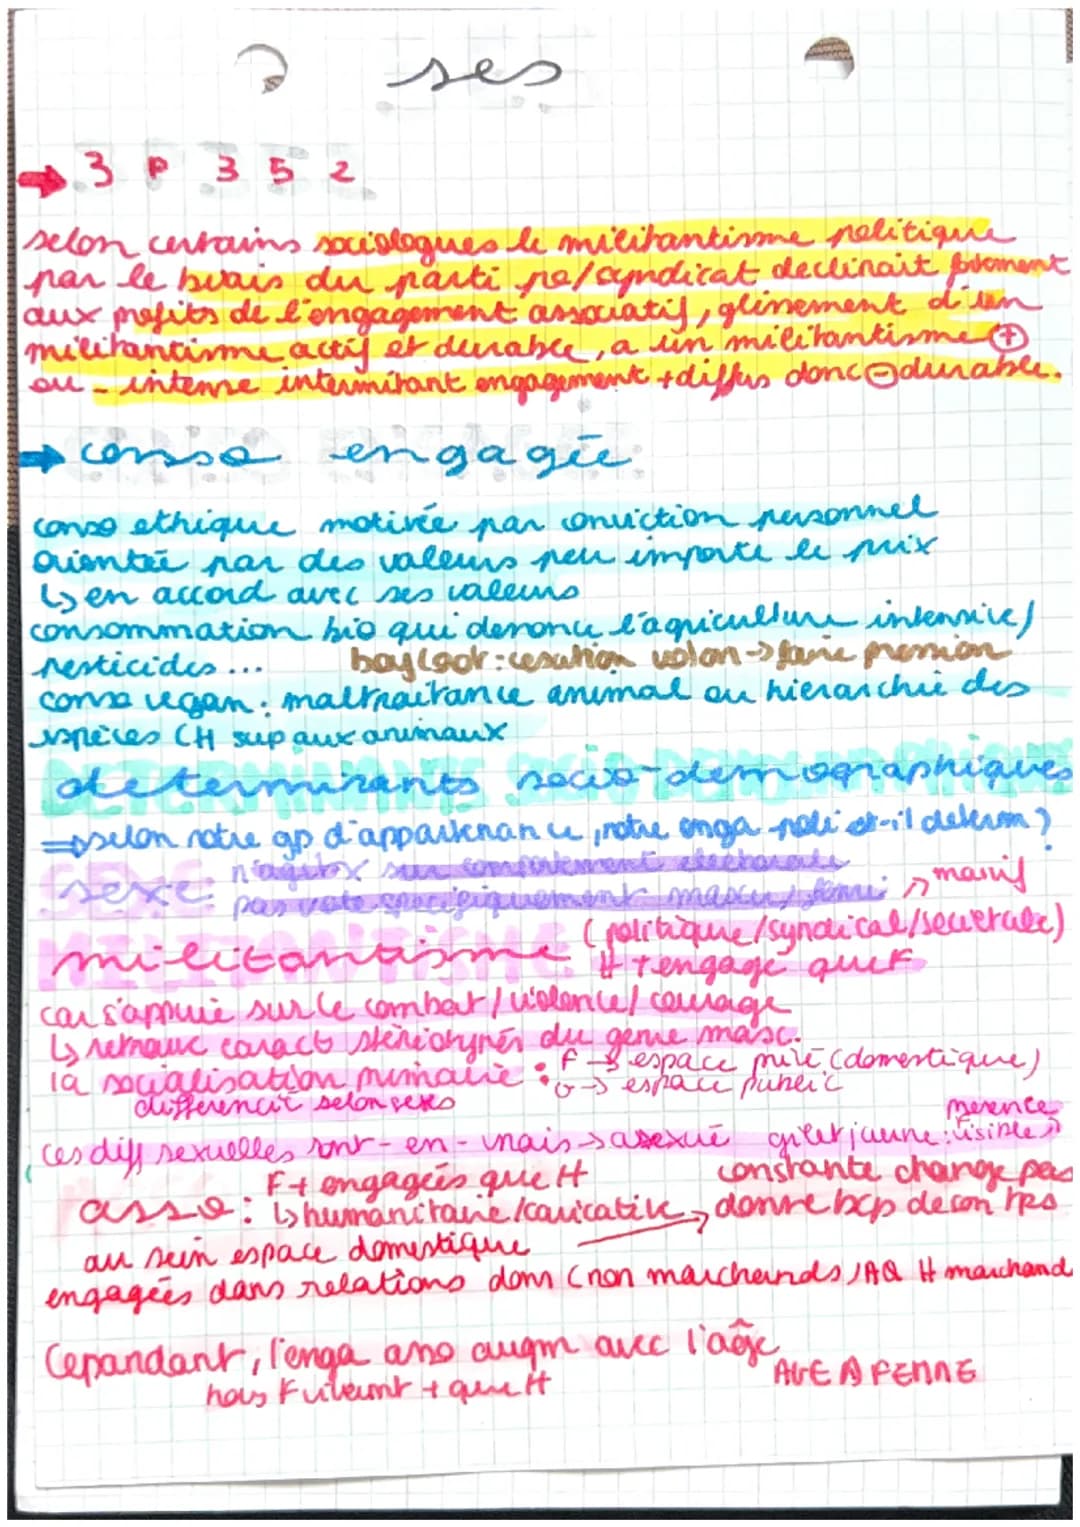 ses
3 P 3 5 2
selon certains sociologues le militantisme politique
par le biais du parti po/syndicat declinait forment
aux profits de l'engagement associatif, glissement d'un
militantisme actif et durable, a un militantisme +
ou - intense intermitant engagement + diffus donc - durable.
conso engagée
conso ethique motivée par conviction personnel
orientée par des valeurs peu importe le prix
↳ en accord avec ses valeurs
consommation bio qui denonce l'agriculture intensive/
pesticides ... boycoot : cesation volon → faire pression
conso vegan : maltraitance animal ou hierarchie des
espèces (H sup aux animaux
determinants socio-demographiques
⇒ selon notre gp d'appartenance, notre enga poli est-il determ ?
sexe : n'agit x sur comportement électorale
pas vote spécifiquement mascu/fémi manif
militantisme (politique/syndical/societale)
H + engagé que F
car s'appuie sur le combat/violence/courage
↳ retrouve caract stéréotypés du genre masc.
la socialisation primaire : F → espace privé (domestique)
G → espace public
differencié selon sexes
ces diff sexuelles sont-en-vrais → asexué gilet jaune : visible
asso : F + engagées que H constante change pas
↳ humanitaire/caricative → donne bcp de son tps
au sein espace domestique
engagées dans relations dons (non marchands) AQ H marchand
Cependant, l'enga asso augm avec l'aôge
hors F vivront + que H